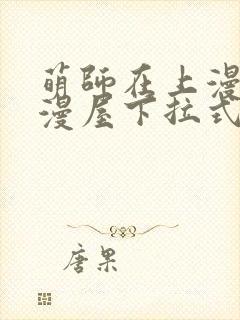 萌師在上漫
漫屋下拉式
唐果